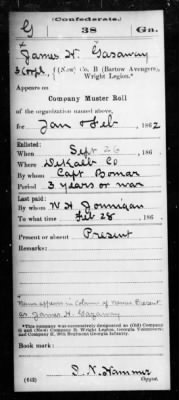 (Confederate.)
G 38 Ga.
James H. Gazaway
3 Corpl., { (New) Co. B (Bartow Avengers),
Wright Legion.*
Appears on
Company Muster Roll
of the organization named above,
for Jan & Feb, 1862
Enlisted:
When Sept 26, 186 .
Where DeKalb Co
By whom Capt Bomar
Period 3 years or war
Last paid:
By whom W H Gounigan
To what time Feb 28, 186 .
Present or absent Present
Remarks:
Name appears in column of names Present
as James H. Gazaway
*This company was successively designated as (Old) Company
and (New) Company B, Wright Legion, Georgia Volunteers;
and Company E, 38th Regiment Georgia Infantry.
Book mark:
(642) S. N. Hammer
Copyist.